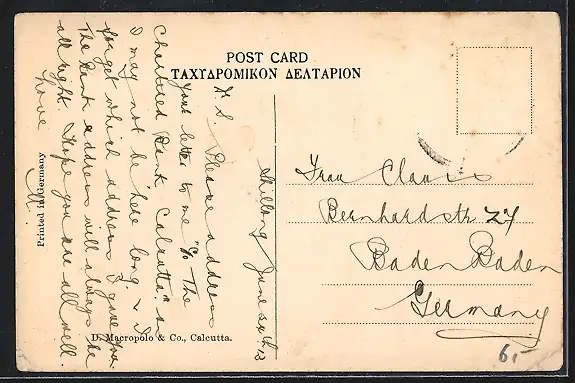 POST CARD
ΤΑΧΥΔΡΟΜΙΚΟΝ ΔΕΛΤΑΡΙΟΝ
Shillong June 24th 13
P. S. Please address
your letter to me "c/o The
Chartered Bank Calcutta" as
I may not be here long & I
forget which address I gave you.
The Bank address will always be
all right. Hope you are all well.
Love
M.
Frau Clauss
Bernhardstr 27
Baden Baden
Germany
Printed in Germany
D. Macropolo & Co., Calcutta.
6,-